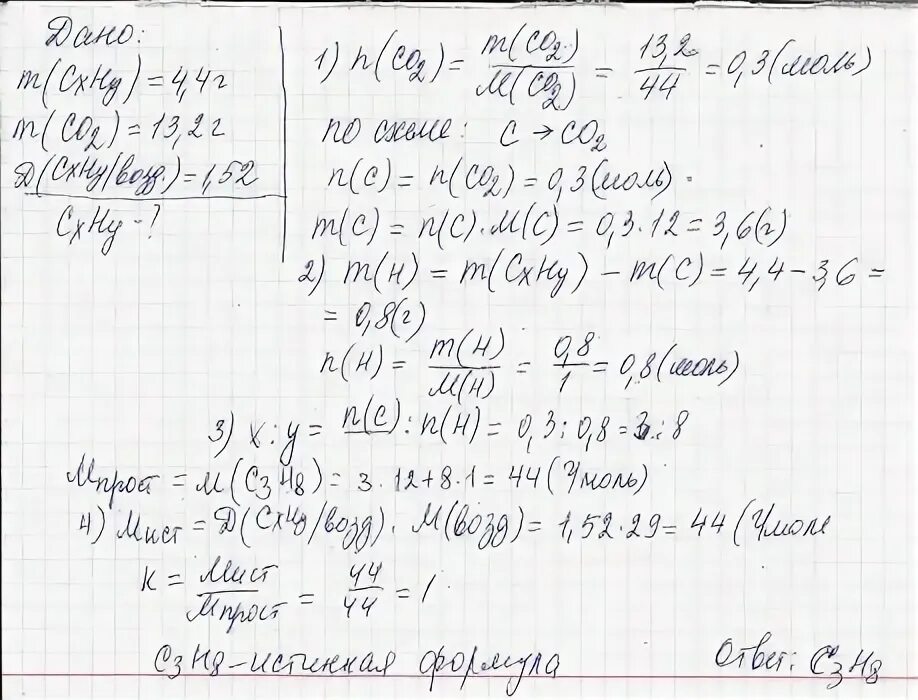 Дано:
m(CxHy) = 4,4 г
m(CO₂) = 13,2 г
Д(CxHy/возд.) = 1,52
CxHy - ?
1) n(CO₂) = m(CO₂)/M(CO₂) = 13,2/44 = 0,3 (моль)
по схеме: C → CO₂
n(C) = n(CO₂) = 0,3 (моль)
m(C) = n(C)·M(C) = 0,3·12 = 3,6 (г)
2) m(H) = m(CxHy) – m(C) = 4,4 – 3,6 =
= 0,8 (г)
n(H) = m(H)/M(H) = 0,8/1 = 0,8 (моль)
3) x:y = n(C):n(H) = 0,3:0,8 = 3:8
Mпрост = M(C₃H₈) = 3·12+8·1 = 44 (г/моль)
4) Mист = Д(CxHy/возд)·M(возд) = 1,52·29 = 44 (г/моль
K = Mист/Mпрост = 44/44 = 1
C₃H₈ – истинная формула
Ответ: C₃H₈